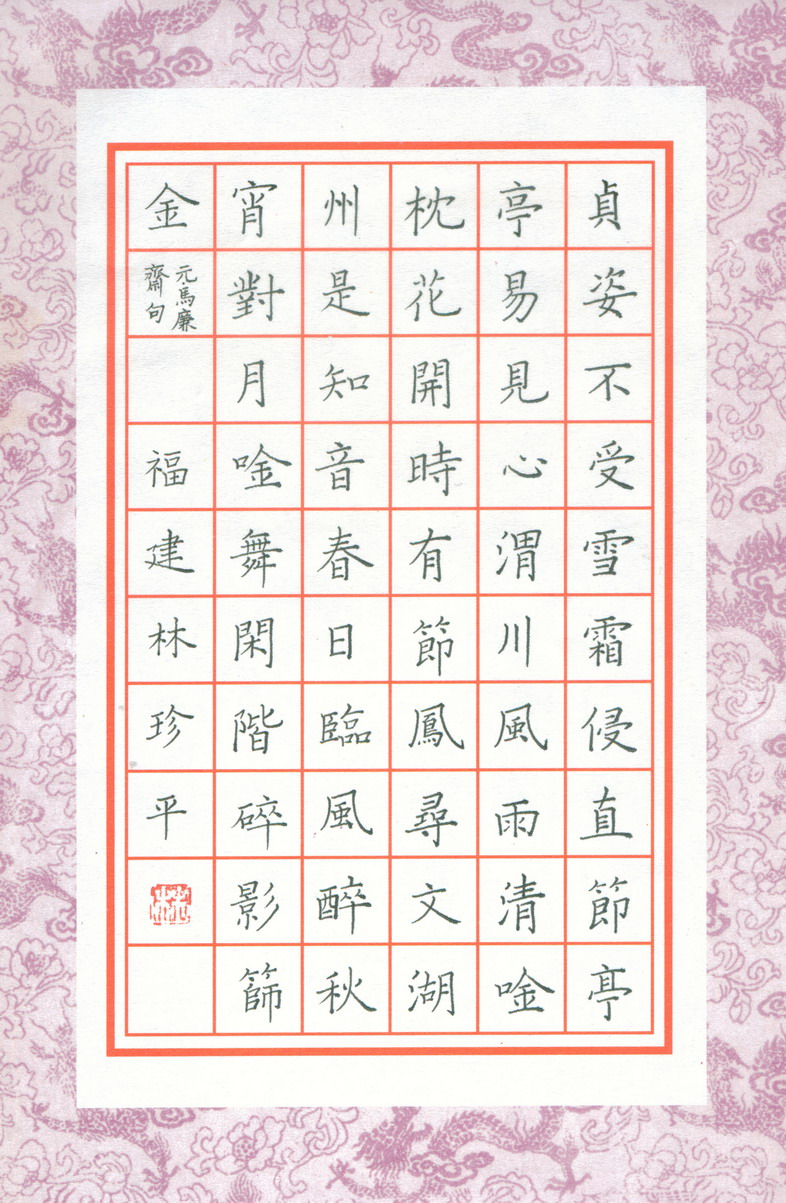 貞姿不受雪霜侵直節亭
亭易見心渭川風雨清唫
枕花開時有節鳳尋文湖
州是知音春日臨風醉秋
宵對月唫舞閑階碎影篩
金
元馬廉
齋句
福建林珍平